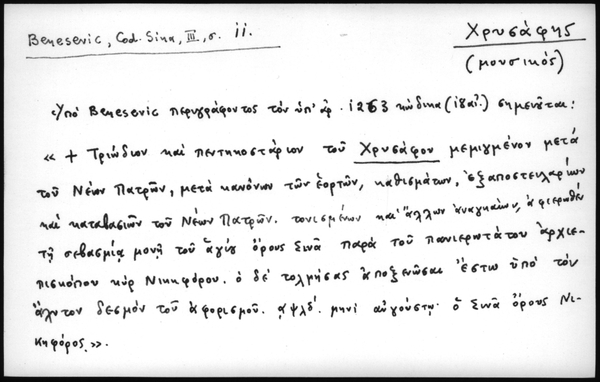 Benesevic, Cod. Sina, III, σ. ii.
Χρυσάφης
(μουσικός)
Ὑπό Benesevic περιγράφοντος τόν ὑπ' ἀρ. 1263 κώδικα (ιζ΄αἰ.) σημειοῦται:
« + Τριώδιον καί πεντηκοστάριον τοῦ Χρυσάφου μεμιγμένον μετά
τοῦ Νέων Πατρῶν, μετά κανόνων τῶν ἑορτῶν, καθισμάτων, ἐξαποστειλαρίων
καί καταβασιῶν τοῦ Νέων Πατρῶν. τονισμένων καί ἄλλων ἀναγκαίων, ἀφιερωθέν
τῇ σεβασμίᾳ μονῇ τοῦ ἁγίου ὄρους Σινᾶ παρά τοῦ πανιερωτάτου ἀρχιε-
πισκόπου κύρ Νικηφόρου. ὁ δέ τολμήσας ἀποξενῶσαι ἔστω ὑπό τόν
ἄλυτον δεσμόν τοῦ ἀφορισμοῦ. ͵αψλδ΄. μηνί αὐγούστῳ. ὁ Σινᾶ ὄρους Νι-
κηφόρος.».